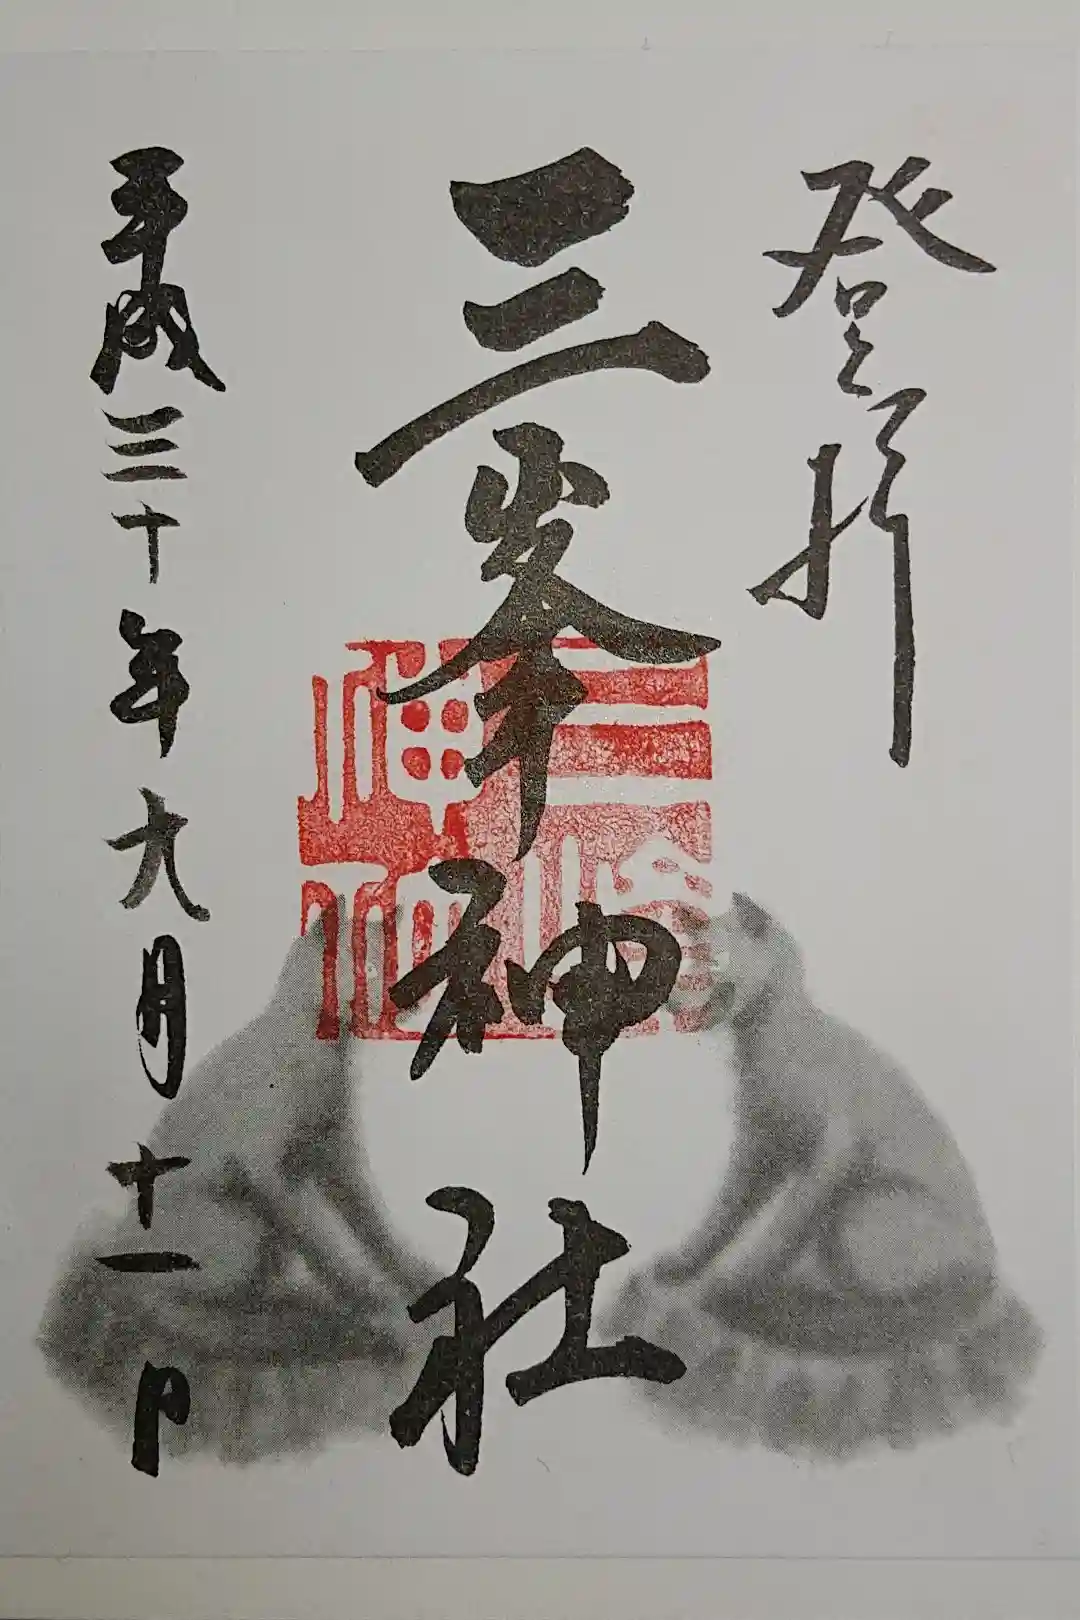 登拝
三峯神社
三峰神社
平成三十年九月十一日